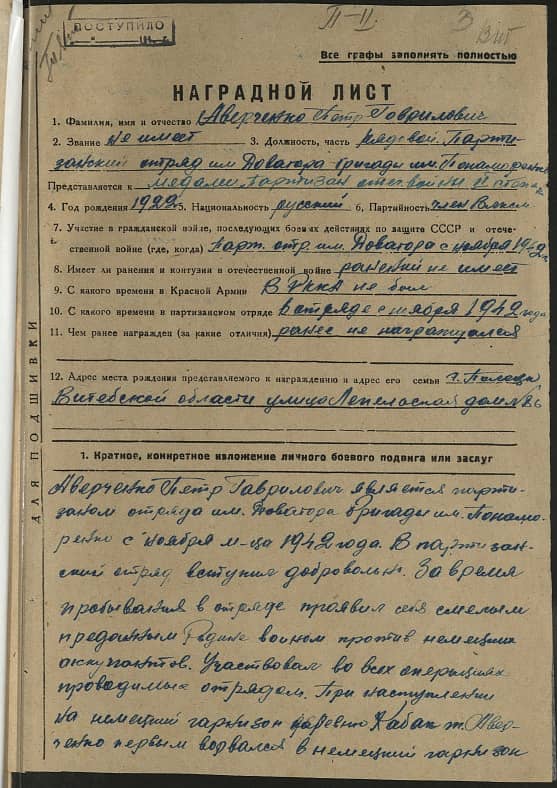 П-II
3
ПОСТУПИЛО
Все графы заполнять полностью
НАГРАДНОЙ ЛИСТ
1. Фамилия, имя и отчество Аверченко Петр Гаврилович
2. Звание не имеет 3. Должность, часть рядовой. Парти-
занский отряд им Доватора бригады им. Понаморенко
Представляется к медали Партизан отеч. войны II степени
4. Год рождения 1922 5. Национальность русский 6. Партийность член ВЛКСМ
7. Участие в гражданской войне, последующих боевых действиях по защите СССР и отече-
ственной войне (где, когда) Парт. отр. им. Доватора с ноября 1942 г.
8. Имеет ли ранения и контузии в отечественной войне ранений не имеет
9. С какого времени в Красной Армии В РККА не был
10. С какого времени в партизанском отряде в отряде с ноября 1942 года
11. Чем ранее награжден (за какие отличия) ранее не награждался
12. Адрес места рождения представляемого к награждению и адрес его семьи г. Полоцк
Витебской области улица Лепельская дом № 86
ДЛЯ ПОДШИВКИ
1. Краткое, конкретное изложение личного боевого подвига или заслуг
Аверченко Петр Гаврилович является парти-
заном отряда им. Доватора бригады им. Понамо-
ренко с ноября м-ца 1942 года. В партизан-
ский отряд вступил добровольно. За время
пребывания в отряде проявил себя смелым
преданным Родине воином против немецких
оккупантов. Участвовал во всех операциях
проводимых отрядом. При наступлении
на немецкий гарнизон деревню Кабак т. Авер-
ченко первым ворвался в немецкий гарнизон